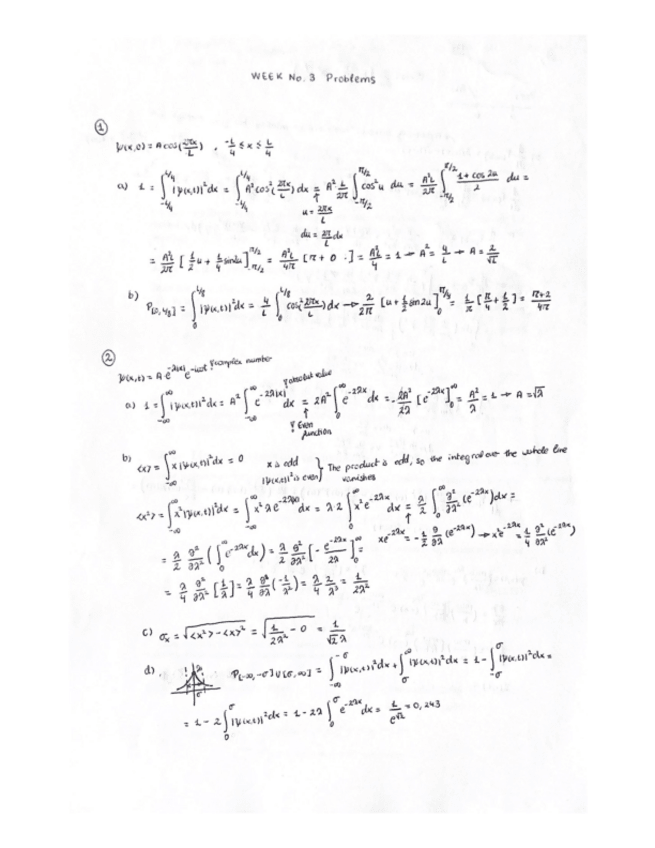 WEEK No. 3 Problems
①
ψ(x,0) = A cos(2πx/L) , -L/4 ≤ x ≤ L/4
a) 1 = ∫_{-L/4}^{L/4} |ψ(x,t)|² dx = ∫_{-L/4}^{L/4} A² cos²(2πx/L) dx = A² L/2π ∫_{-π/2}^{π/2} cos² u du = A²L/2π ∫_{-π/2}^{π/2} (1 + cos 2u)/2 du =
u = 2πx/L
du = 2π/L dx
= A²L/2π [1/2 u + 1/4 sin2u]_{-π/2}^{π/2} = A²L/4π [π + 0] = A²L/4 = 1 → A² = 4/L → A = 2/√L
b) P[0, L/8] = ∫_0^{L/8} |ψ(x,t)|² dx = 4/L ∫_0^{L/8} cos²(2πx/L) dx → 2/2π [u + 1/2 sin 2u]_0^{π/4} = 1/π [π/4 + 1/2] = (π+2)/4π
②
ψ(x,t) = A · e^{-λ|x|} e^{-iωt} complex number
a) 1 = ∫_{-∞}^{∞} |ψ(x,t)|² dx = A² ∫_{-∞}^{∞} e^{-2λ|x|} dx = 2A² ∫_0^{∞} e^{-2λx} dx = -2A²/2λ [e^{-2λx}]_0^{∞} = A²/λ = 1 → A = √λ
absolute value
Even
function
b) <x> = ∫_{-∞}^{∞} x |ψ(x,t)|² dx = 0
x is odd
|ψ(x,t)|² is even } The product is odd, so the integral over the whole line
vanishes
<x²> = ∫_{-∞}^{∞} x² |ψ(x,t)|² dx = ∫_{-∞}^{∞} x² λ e^{-2λ|x|} dx = λ 2 ∫_0^{∞} x² e^{-2λx} dx = λ/2 ∫_0^{∞} ∂²/∂λ² (e^{-2λx}) dx =
x e^{-2λx} = -1/2 ∂/∂λ (e^{-2λx}) → x² e^{-2λx} = 1/4 ∂²/∂λ² (e^{-2λx})
= λ/2 ∂²/∂λ² (∫_0^{∞} e^{-2λx} dx) = λ/2 ∂²/∂λ² [-e^{-2λx}/2λ]_0^{∞} =
= λ/4 ∂²/∂λ² [1/λ] = λ/4 ∂/∂λ (-1/λ²) = λ/4 2/λ³ = 1/2λ²
c) σ_x = √(<x²> - <x>²) = √(1/2λ² - 0) = 1/√2 λ
d) P[-∞, -σ] ∪ [σ, ∞] = ∫_{-∞}^{-σ} |ψ(x,t)|² dx + ∫_σ^{∞} |ψ(x,t)|² dx = 1 - ∫_{-σ}^{σ} |ψ(x,t)|² dx =
= 1 - 2 ∫_0^{σ} |ψ(x,t)|² dx = 1 - 2λ ∫_0^{σ} e^{-2λx} dx = 1/e^{√2} = 0,243